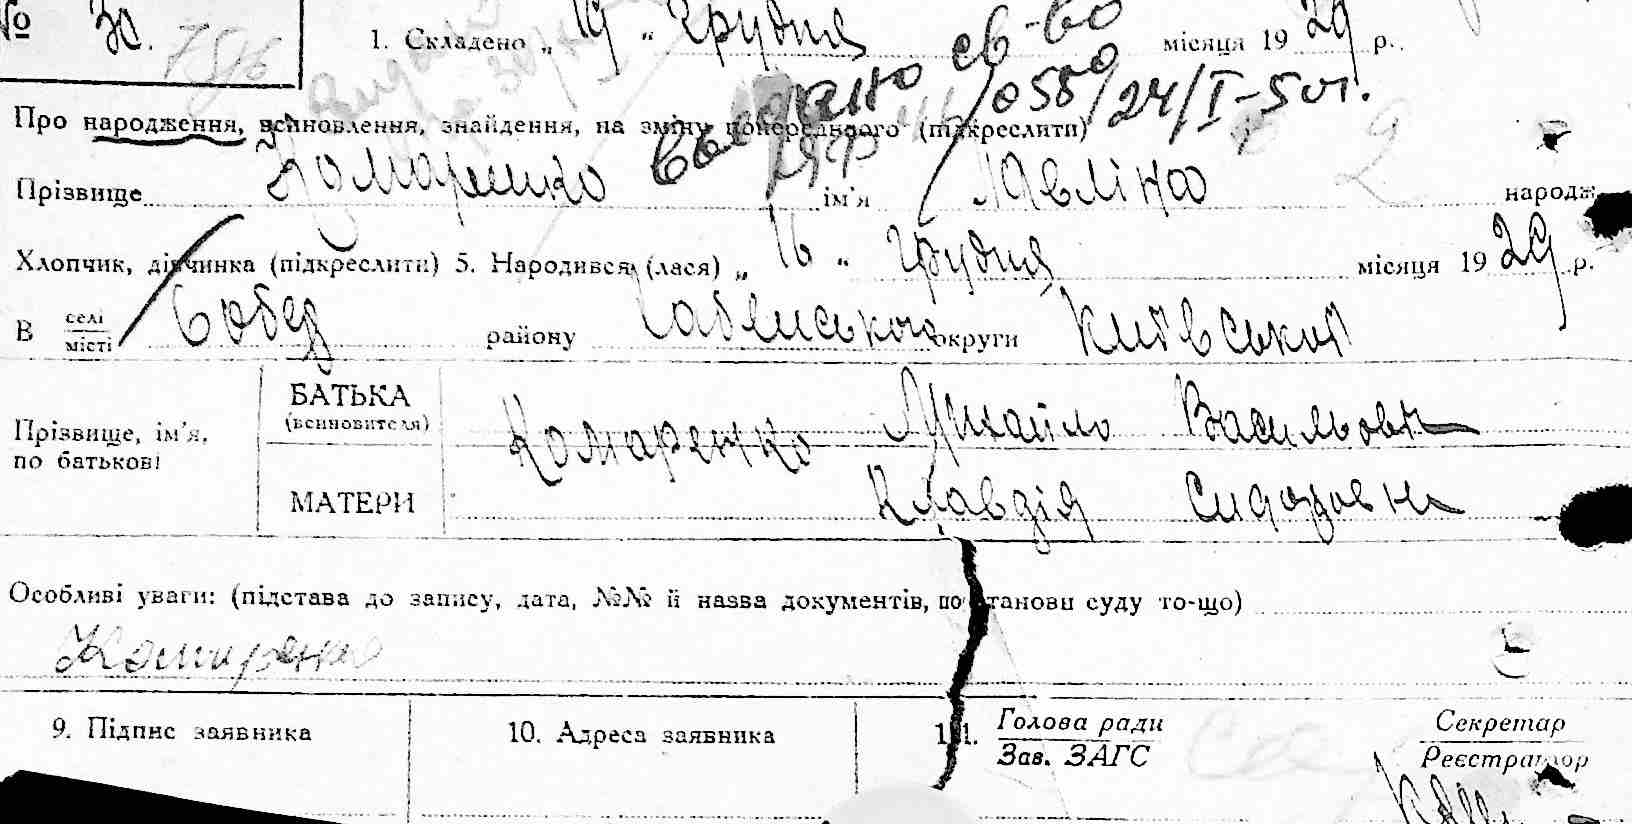 № 30. 1. Складено „ 19 “ грудня місяця 19 29 р.
выдано св-во
058 / 24/I-5
Про народження, всиновлення, знайдення, на зміну попереднього (підкреслити)
Прізвище Комаренко ім'я Павліна народж.
Хлопчик, дівчинка (підкреслити) 5. Народився (лася) „ 16 “ грудня місяця 19 29 р.
В селі
місті району округи Київської
Прізвище, ім'я, по батькові
БАТЬКА (всиновителя) Комаренко Михайло Васильович
МАТЕРИ Клавдія Сидоровна
Особливі уваги: (підстава до запису, дата, №№ й назва документів, постанови суду то-що)
Комаренко
9. Підпис заявника 10. Адреса заявника 11. Голова ради Секретар
Зав. ЗАГС Реєстратор